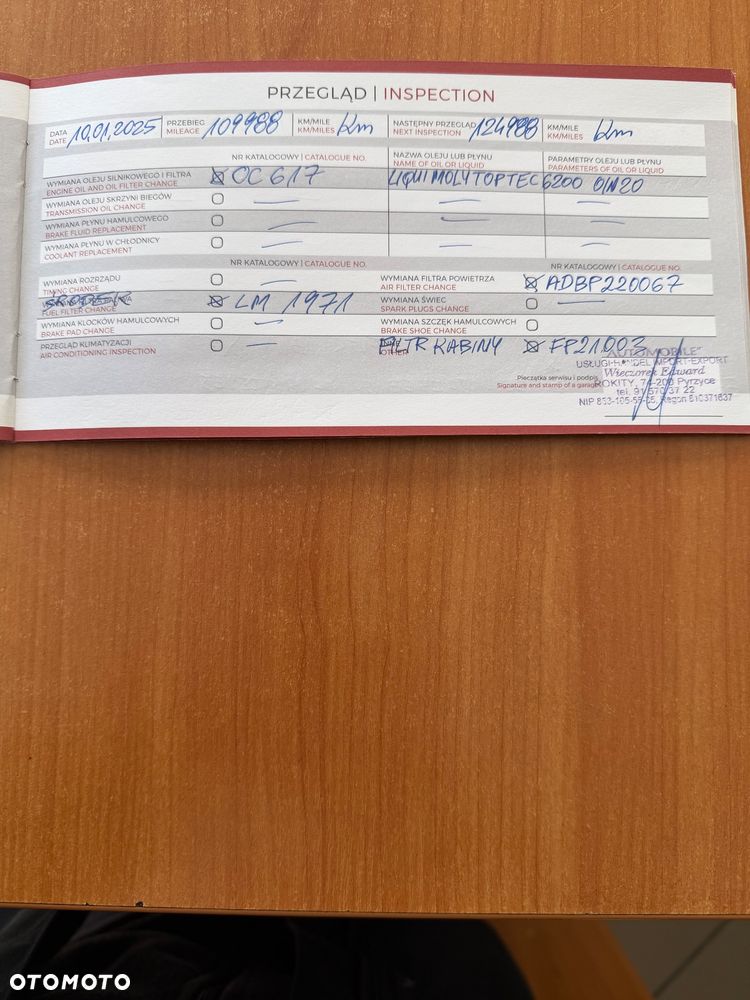 PRZEGLĄD | INSPECTION
DATA 10,01,2025 PRZEBIEG 109988 KM/MILE Km NASTĘPNY PRZEGLĄD 124988 KM/MILE km
DATE MILEAGE KM/MILES NEXT INSPECTION KM/MILES
NR KATALOGOWY | CATALOGUE NO. NAZWA OLEJU LUB PŁYNU PARAMETRY OLEJU LUB PŁYNU
NAME OF OIL OR LIQUID PARAMETERS OF OIL OR LIQUID
WYMIANA OLEJU SILNIKOWEGO I FILTRA OC 617 LIQUI MOLY TOPTEC 6200 0W20
ENGINE OIL AND OIL FILTER CHANGE
WYMIANA OLEJU SKRZYNI BIEGÓW — — —
TRANSMISSION OIL CHANGE
WYMIANA PŁYNU HAMULCOWEGO — — —
BRAKE FLUID REPLACEMENT
WYMIANA PŁYNU W CHŁODNICY — — —
COOLANT REPLACEMENT
NR KATALOGOWY | CATALOGUE NO. NR KATALOGOWY | CATALOGUE NO.
WYMIANA ROZRZĄDU — WYMIANA FILTRA POWIETRZA ADBP220067
TIMING CHANGE AIR FILTER CHANGE
LM 1971 WYMIANA ŚWIEC —
FUEL FILTER CHANGE SPARK PLUGS CHANGE
WYMIANA KLOCKÓW HAMULCOWYCH — WYMIANA SZCZĘK HAMULCOWYCH
BRAKE PAD CHANGE BRAKE SHOE CHANGE
PRZEGLĄD KLIMATYZACJI — FILTR KABINY FP21003
AIR CONDITIONING INSPECTION OTHER
"AUTOMOBILE"
USŁUGI-HANDEL IMPORT-EXPORT
Pieczątka serwisu i podpis Wieczorek Edward
Signature and stamp of a garage ROKITY, 74-200 Pyrzyce
tel. 91 570 37 22
NIP 853-105-55-65, Regon 810371637
OTOMOTO